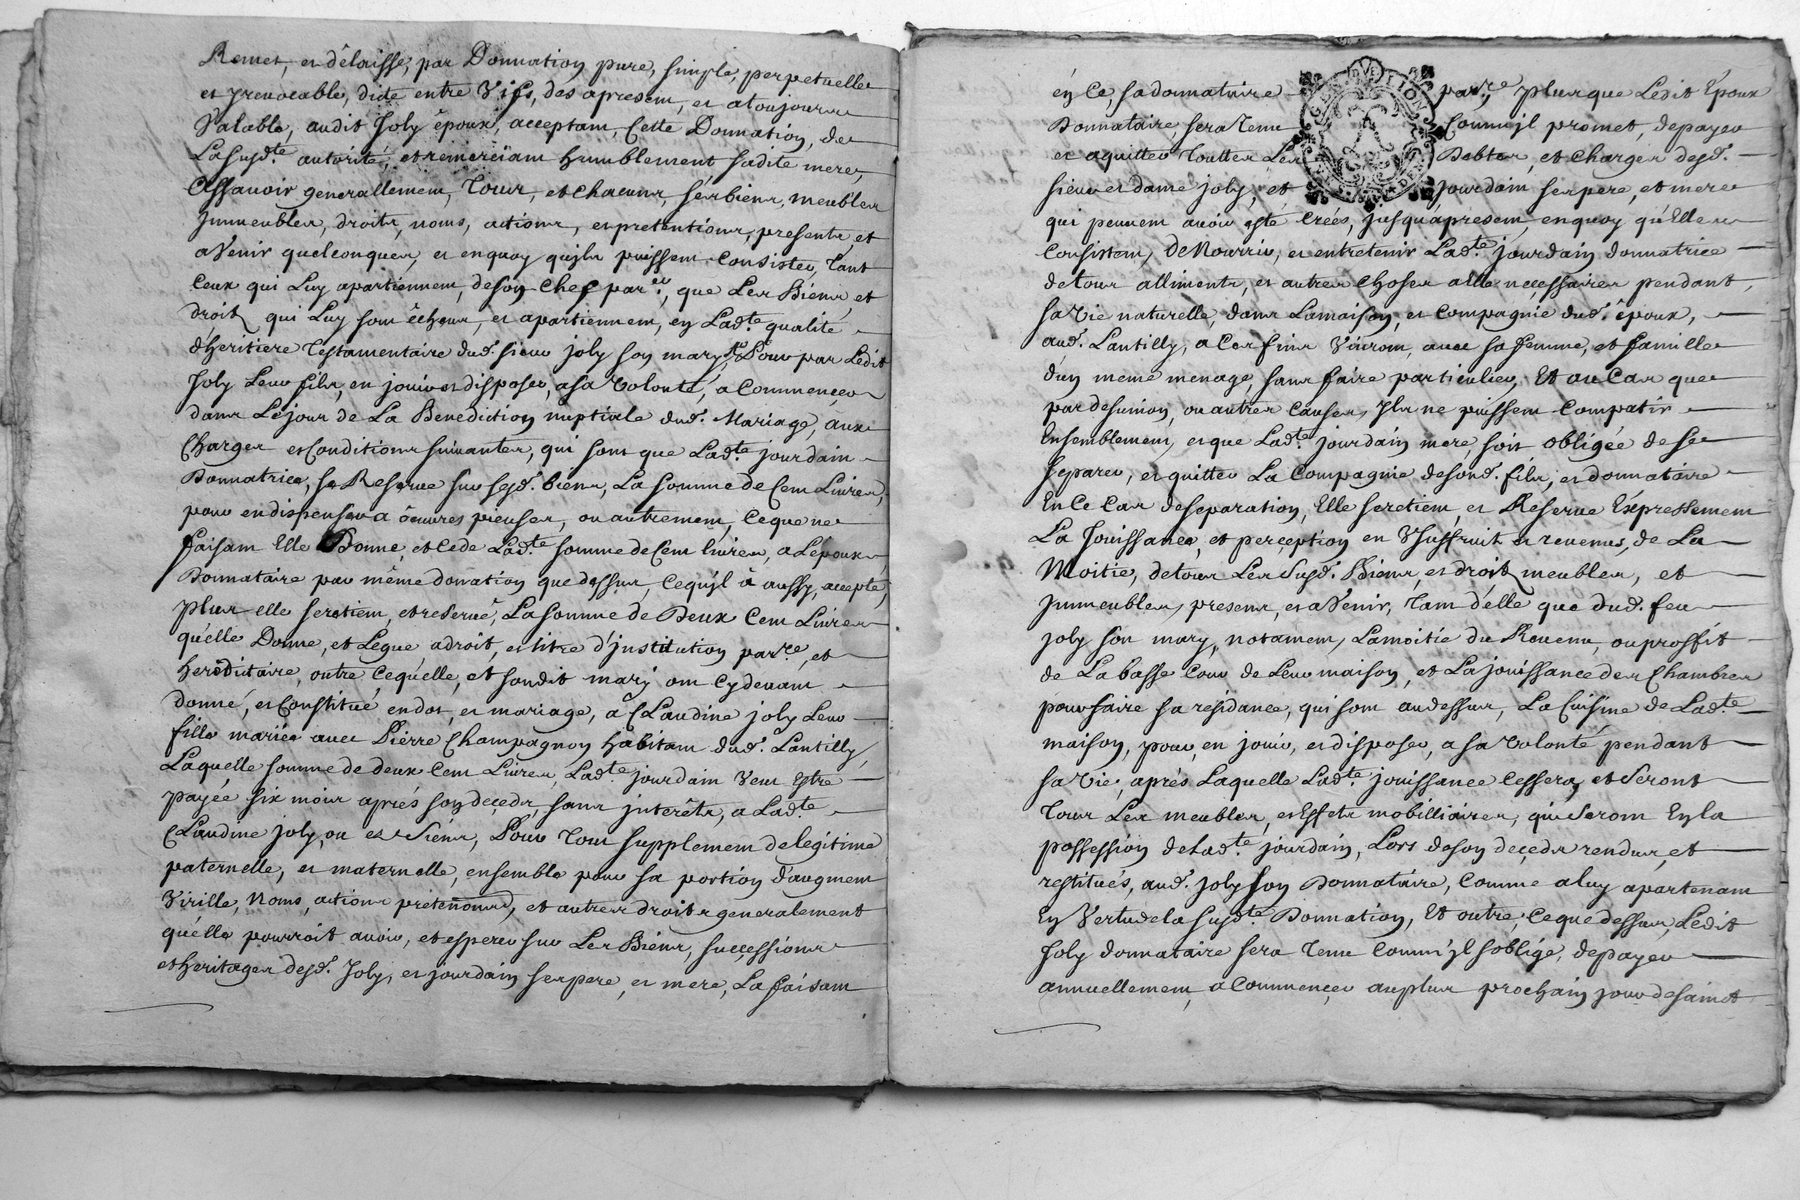 Remet, et délaisse, par Donnation pure, simple, perpetuelle
et yrevocable, dicte entre Vifs, des apresent, et atoujours
Valable, audit Joly époux, acceptant, Cette Donnation, de
La susd.te autorité, et remerciant humblement sadite mere,
Assavoir generallement, Tous, et chacuns, ses biens, meubles
Jmmeubles, droits, noms, actions, et pretentions, presents, et
aVenir quelconques, et en quoy qujls puissent Consister, Tant
Ceux qui Luy apartiennent, deson chef par.er, que Les Biens et
droits qui Luy sont êcheus, et apartiennent, en Lad.te qualité
d'heritiere Testamentaire dud. sieur joly son mary, Pour par Ledit
Joly Leur fils, en jouir et disposer, asa Volonté, a Commencer
dans Le jour de La Benediction nuptiale dud. Mariage, aux
Charges et Conditions suivantes, qui sont que Lad.te jourdain
Donnatrice, se Reserve sur sesd. biens, La somme de Cent Livres,
pour en dispenser a ôeuvres pieuses, ou autrement, Ceque ne
faisant Elle Donne, et Cede Lad.te somme de Cent livres, a L'époux,
Donnataire par même donation que dessus, Cequ'jl à aussy, accepté,
plus elle seretient, et reserve, La somme de Deux Cent Livres
qu'elle Donne, et Legue adroit, et titre d'jnstitution par.re, et
hereditaire, outre Cequ'elle, et sondit mary ont Cydevant
donné, et Constitué en dot, et mariage, à CLaudine joly Leur
fille mariée avec Pierre Champagnon habitant dud. Lantilly,
Laquelle somme de deux Cent Livres, Lad.te jourdain Veut Estre
payée six mois aprés son decedz, sans interêts, a Lad.te
CLaudine joly, ou es Siens, Pour Tout supplement de legitime
paternelle, et maternelle, ensemble pour sa portion d'augment
Virille, Noms, actions pretentions, et autres droits generalement
quélle pourroit avoir, et esperer sur Les Biens, successions
et heritages desd. Joly, et jourdain ses pere, et mere, La faisant
én Ce, sa donnataire par.re, plus que Ledit Époux
Donnataire, sera Tenu Comm'jl promet, depayer
et aquitter Touttes Les Debtes, et charges desd.
sieur et dame joly, et jourdain ses pere, et mere
qui peuvent avoir esté Creés, jusqu'apresent, enquoy qu'Elles
Consistent, de Nourrir, et entretenir Lad.te jourdain donnatrice
detous alliments, et autres choses aelle necessaires pendant
sa Vie naturelle, dans Lamaison, et Compagnie dud. époux,
aud. Lantilly, a Ces fins Vivront, avec sa femme, et famille
d'un meme menage, sans faire particulier, Et au Cas que
par desunion, ou autres Causes, Jls ne puissent Compatir
Ensemblement, et que Lad.te jourdain mere, soit obligée de se
separer, et quitter La Compagnie de sond. fils, et donnataire
En Ce Cas deseparation, Elle seretient, et Reserve Éxpressement
La Jouissance, et perception en Vsuffruit et revenus, de La
Moitie, detous Les Susd. Biens, et droits meubles, et
Jmmeubles, presens, et aVenir, Tant d'elle que dud. feu
joly son mary, notament, Lamoitié du Revenu, ou proffit
de La basse Cour de Leur maison, et La jouissance des Chambres
pour faire sa residance, qui sont au dessus, La Cuisine de Lad.te
maison, pour, en jouir, et disposer, a sa Volonté pendant
sa Vie, aprés Laquelle Lad.te jouissance Cessera, et Seront
Tous Les meubles, et Effets mobilliaires, qui Seront En la
possession de Lad.te jourdain, Lors deson decedz rendus, et
restitués, aud. joly son Donnataire, Comme aluy apartenant
En Vertu dela susd.te Donnation, Et outre, Ceque dessus, Ledit
Joly donnataire sera Tenu Comm'jl soblige, depayer
annuellement, a Commencer auplus prochain jour de saint